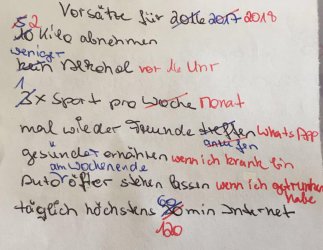 Vorsätze für 2016 2017 2018
5 2
10 Kilo abnehmen
weniger
kein Alkohol vor 16 Uhr
1
3x Sport pro Woche Monat
mal wieder Freunde treffen WhatsApp
anrufen
gesünder ernähren wenn ich krank bin
am Wochenende
Auto öfter stehen lassen wenn ich getrunken
habe
60
täglich höchstens 30 min Internet
120